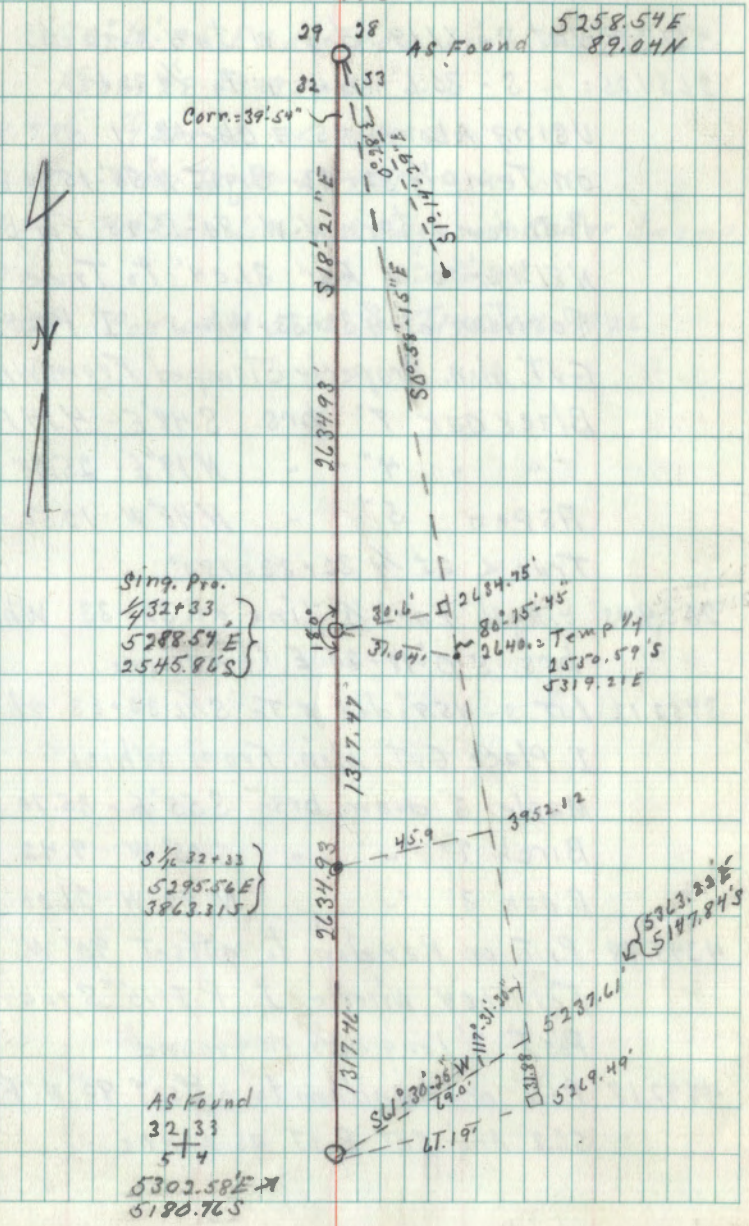 5258.54E
29 28
As Found
89.04N
32 33
Corr.=39'-54"
S18'-21"E
S1°-14'-29"E
S0°-58'-15"E
2634.93'
N
Sing. Pro.
1/4 32+33
5288.54'E
2545.86'S
180°
30.6'
2634.75'
80°-75'-45"
31.04'
2640.= Temp 1/4
2550.59'S
5319.21E
1317.47'
45.9
3952.12
S 1/16 32+33
5295.56E
3863.31S
2634.93
5363.22'E
5147.84'S
5237.61'
117°-31'-20"
S61°-30'-25"W
69.0'
1317.46'
5269.49'
61.19'
As Found
32 33
5 4
5302.58'E
5180.76S